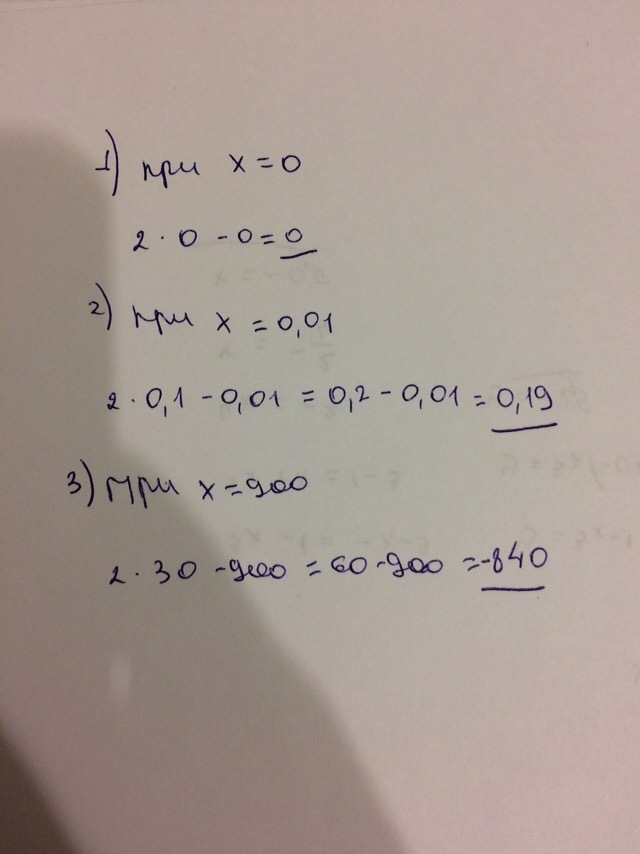 1) при x = 0
2 · 0 - 0 = 0
2) при x = 0,01
2 · 0,1 - 0,01 = 0,2 - 0,01 = 0,19
3) При x = 900
2 · 30 - 900 = 60 - 900 = -840